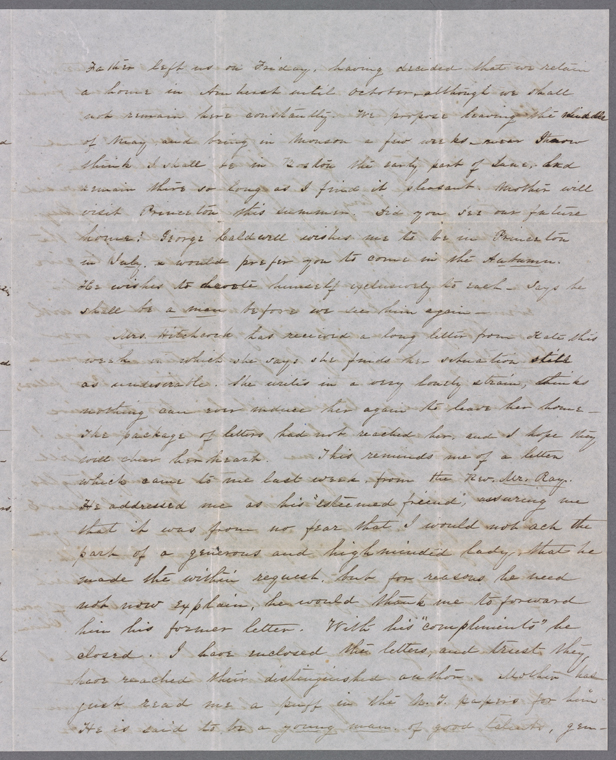 Father left us on Friday, having decided that we retain
a home in Amherst until October, although we shall
not remain here constantly. We propose leaving the middle
of May and being in Monson a few weeks
think I shall be in Boston the early part of June, and
remain there so long as I find it pleasant. Mother will
visit Princeton this summer. Did you see our future
home? George Caldwell wishes me to be in Princeton
in July, & would prefer you to come in the Autumn.
He wishes to devote himself exclusively to each. Says he
shall be a man before we see him again—
Mrs. Hitchcock has received a long letter from Kate this
week in which she says she finds her situation still
as undesirable. She writes in a very lonely strain, thinks
nothing can ever induce her again to leave her home—
The package of letters had not reached her, and I hope they
will cheer her heart. This reminds me of a letter
which came to me last week, from the Rev. Mr. Ray.
He addressed me as his "esteemed friend", assuring me
that it was from no fear that I would not act the
part of a generous and highminded lady, that he
made the within request, but for reasons he need
not now explain, he would thank me to forward
him his former letter. With his "compliments" he
closed. I have enclosed the letters, and trust they
have reached their distinguished author. Mother has
just read me a puff in the N.Y. papers for him
He is said to be a young man of good talents, gen-